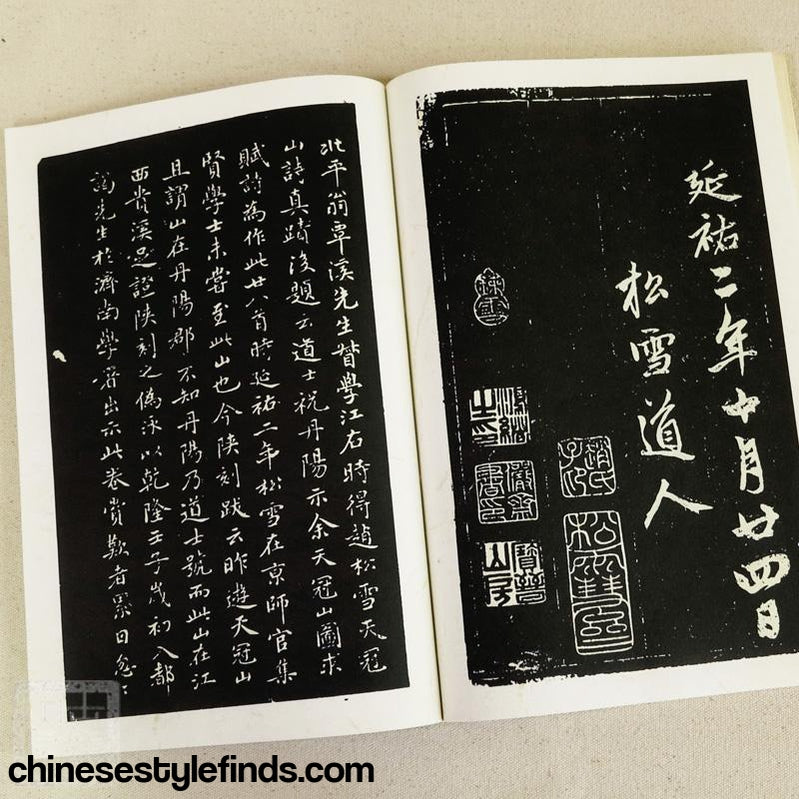 延祐二年十月廿四日
松雪道人
趙氏子昂
松雪齋
北平翁覃溪先生督學江右時得趙松雪天冠
山詩真蹟後題云道士祝丹陽示余天冠山圖求
賦詩為作此廿八首時延祐二年松雪在京師官集
賢學士未嘗至此山也今陝刻跋云昨遊天冠山
且謂山在丹陽郡不知丹陽乃道士號而此山在江
西貴溪足證陝刻之偽泳以乾隆壬子歲初入都
謁先生於濟南學署出示此卷賞歎者累日怱〻
chinesestylefinds.com